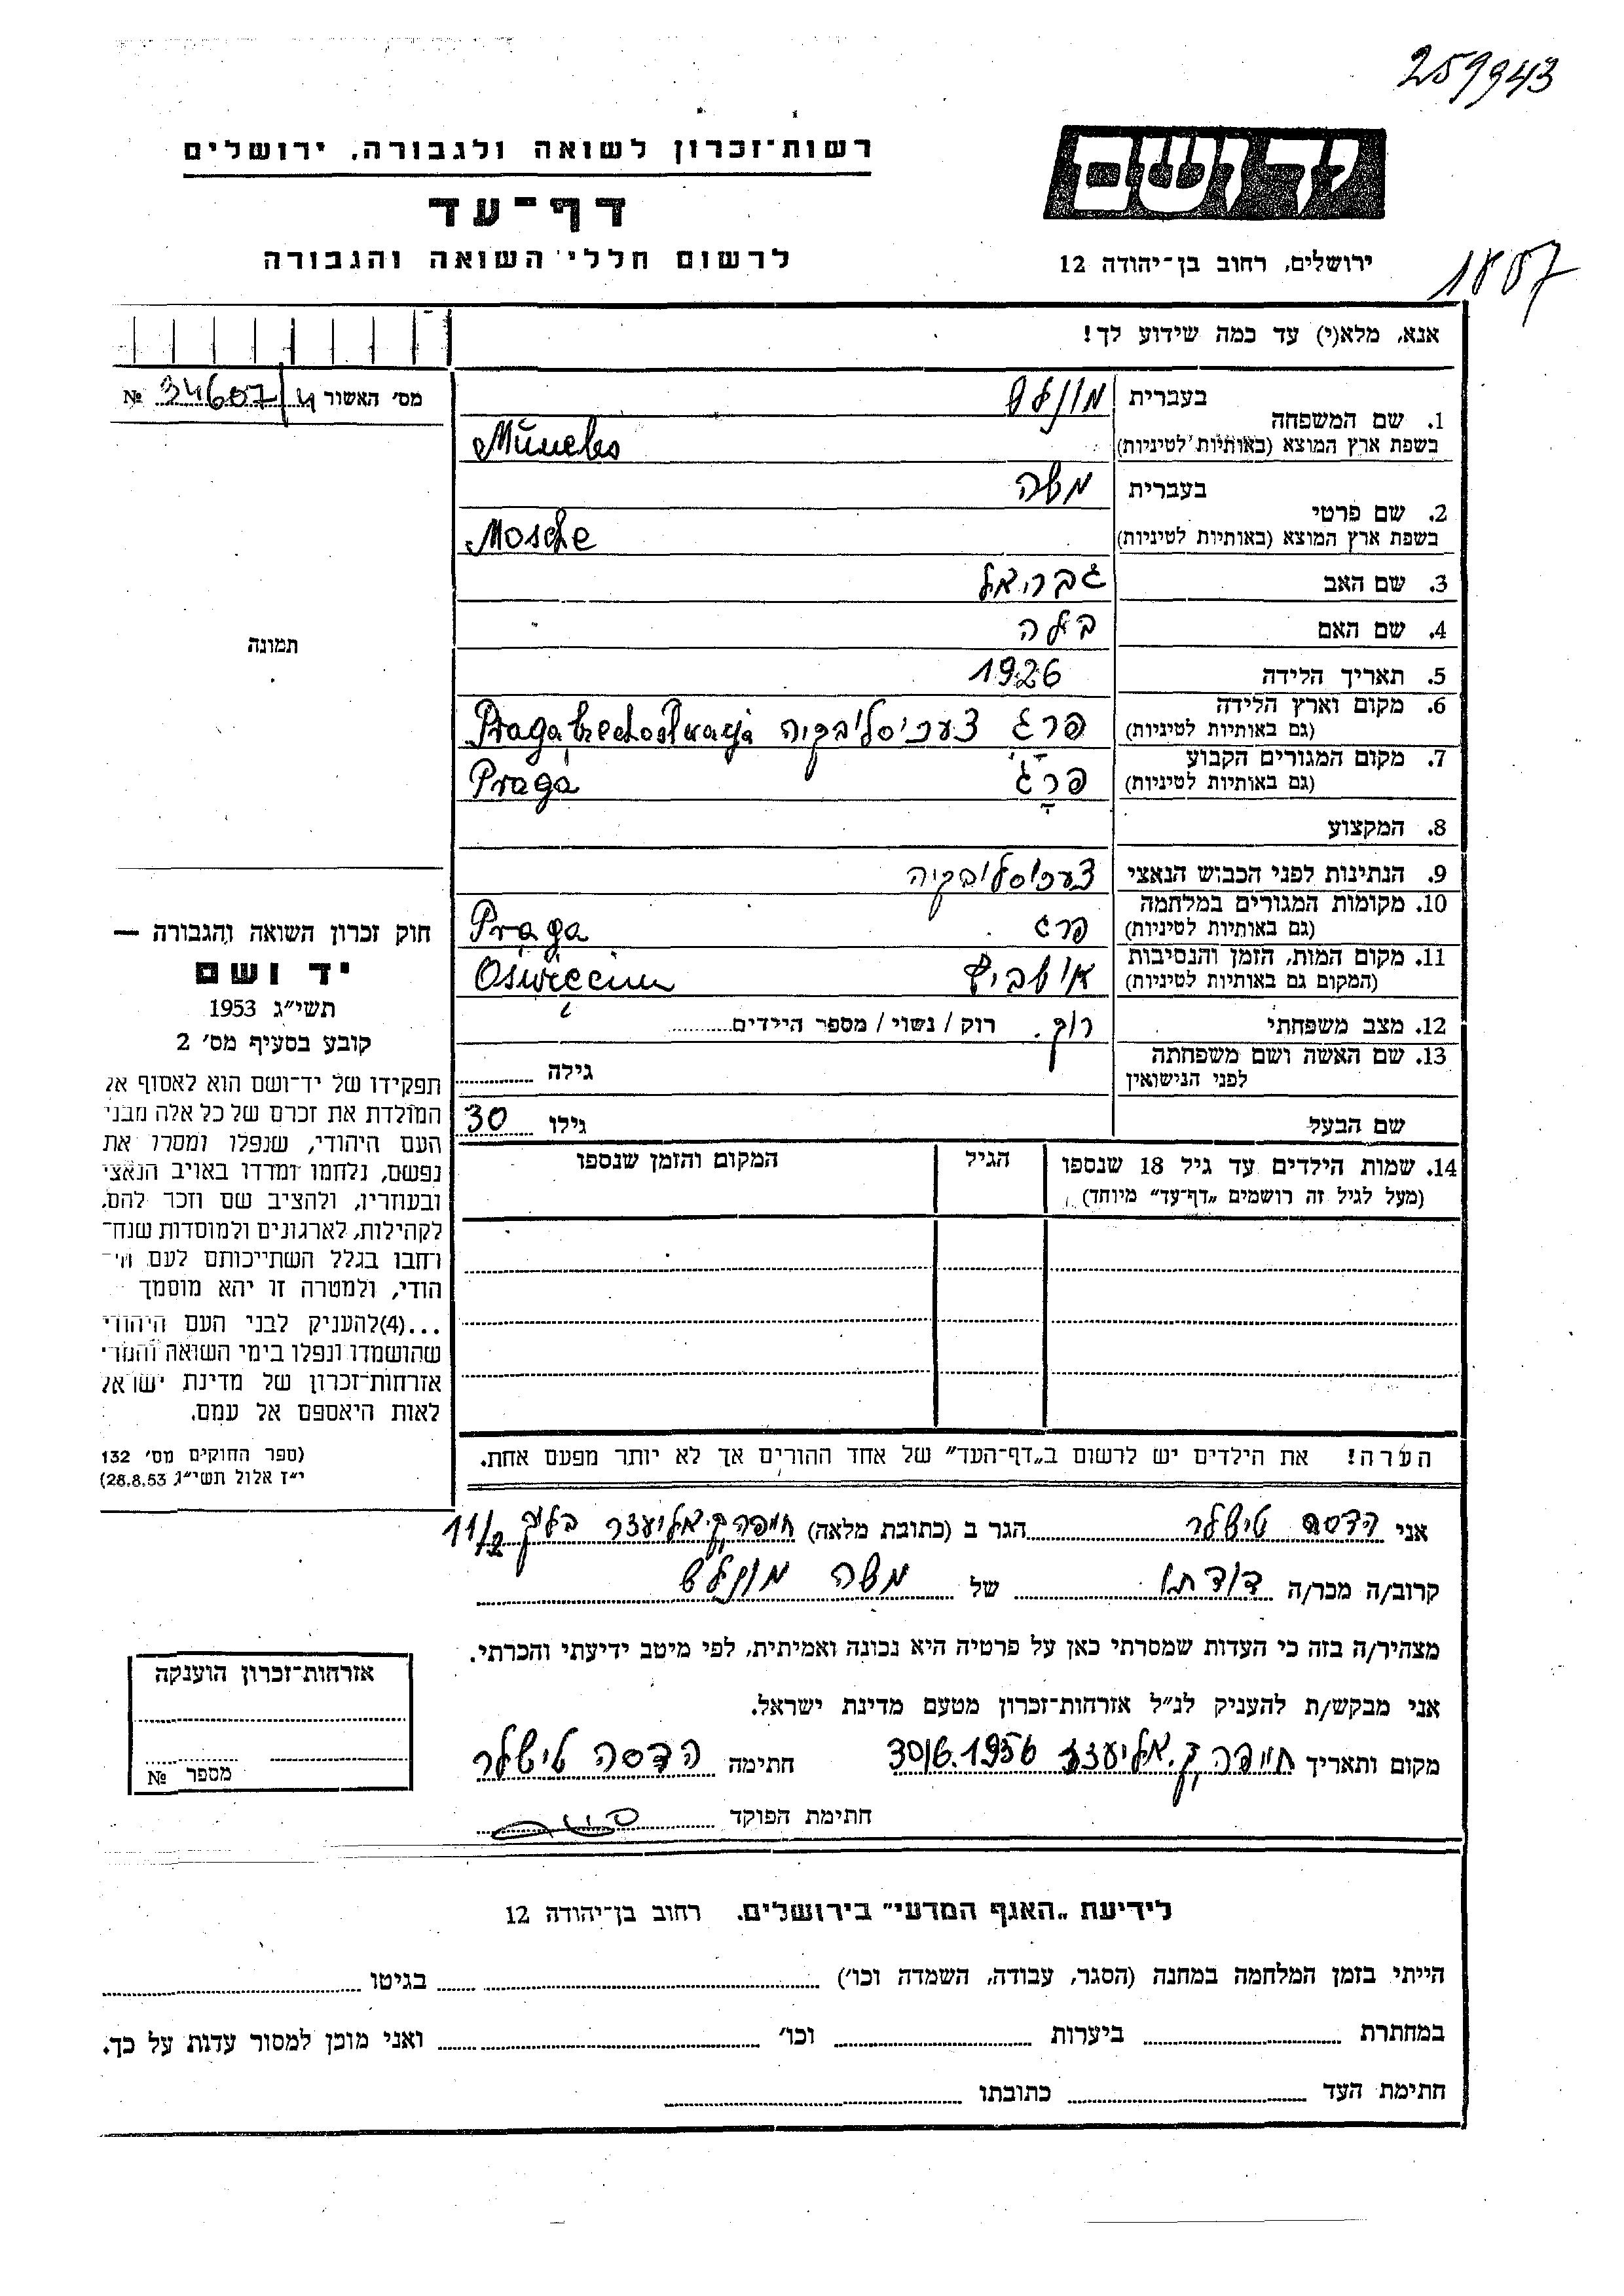 259943
רשות־זכרון לשואה ולגבורה, ירושלים
יד ושם
דף־עד
לרשום חללי השואה והגבורה
ירושלים, רחוב בן־יהודה 12
1807
אנא, מלא(י) עד כמה שידוע לך!
מס׳ האשור 34607/4 №
1. שם המשפחה
בעברית
בשפת ארץ המוצא (באותיות לטיניות)
Müneles
2. שם פרטי
בעברית משה
בשפת ארץ המוצא (באותיות לטיניות) Mosche
3. שם האב גבריאל
4. שם האם בילה
5. תאריך הלידה 1926
6. מקום וארץ הלידה
(גם באותיות לטיניות)
פרג צעכיסלובקיה Praga
7. מקום המגורים הקבוע
(גם באותיות לטיניות)
פרג Praga
8. המקצוע
9. הנתינות לפני הכבוש הנאצי צעכוסלובקיה
10. מקומות המגורים במלחמה
(גם באותיות לטיניות)
פרג Praga
11. מקום המות, הזמן והנסיבות
(המקום גם באותיות לטיניות)
Oświęcim
12. מצב משפחתי רוק. רוק / נשוי / מספר הילדים
13. שם האשה ושם משפחתה
לפני הנישואין
גילה
שם הבעל גילו 30
14. שמות הילדים עד גיל 18 שנספו
(מעל לגיל זה רושמים „דף־עד״ מיוחד)
הגיל
המקום והזמן שנספו
הערה! את הילדים יש לרשום ב„דף־העד״ של אחד ההורים אך לא יותר מפעם אחת.
תמונה
חוק זכרון השואה והגבורה —
יד ושם
תשי״ג 1953
קובע בסעיף מס׳ 2
תפקידו של יד־ושם הוא לאסוף אל
המולדת את זכרם של כל אלה מבני
העם היהודי, שנפלו ומסרו את
נפשם, נלחמו ומרדו באויב הנאצי
ובעוזריו, ולהציב שם וזכר להם,
לקהילות, לארגונים ולמוסדות שנח־
רחבו בגלל השתייכותם לעם הי־
הודי, ולמטרה זו יהא מוסמך
...(4)להעניק לבני העם היהודי
שהושמדו ונפלו בימי השואה והמרי
אזרחות־זכרון של מדינת ישראל
לאות היאספם אל עמם.
(ספר החוקים מס׳ 132
י״ז אלול תשי״ג 28.8.53)
אני הדסה טישלר הגר ב (כתובת מלאה) חיפה ק.אליעזר בלוק 11/2
קרוב/ה מכר/ה דודתו של משה
מצהיר/ה בזה כי העדות שמסרתי כאן על פרטיה היא נכונה ואמיתית, לפי מיטב ידיעתי והכרתי.
אני מבקש/ת להעניק לנ״ל אזרחות־זכרון מטעם מדינת ישראל.
מקום ותאריך חיפה ק.אליעזר 30/6.1956 חתימה הדסה טישלר
חתימת הפוקד
אזרחות־זכרון הוענקה
מספר №
לידיעת „האגף המדעי״ בירושלים. רחוב בן־יהודה 12
הייתי בזמן המלחמה במחנה (הסגר, עבודה, השמדה וכו׳) בגיטו
במחתרת ביערות וכו׳ ואני מוכן למסור עדות על כך.
חתימת העד כתובתו